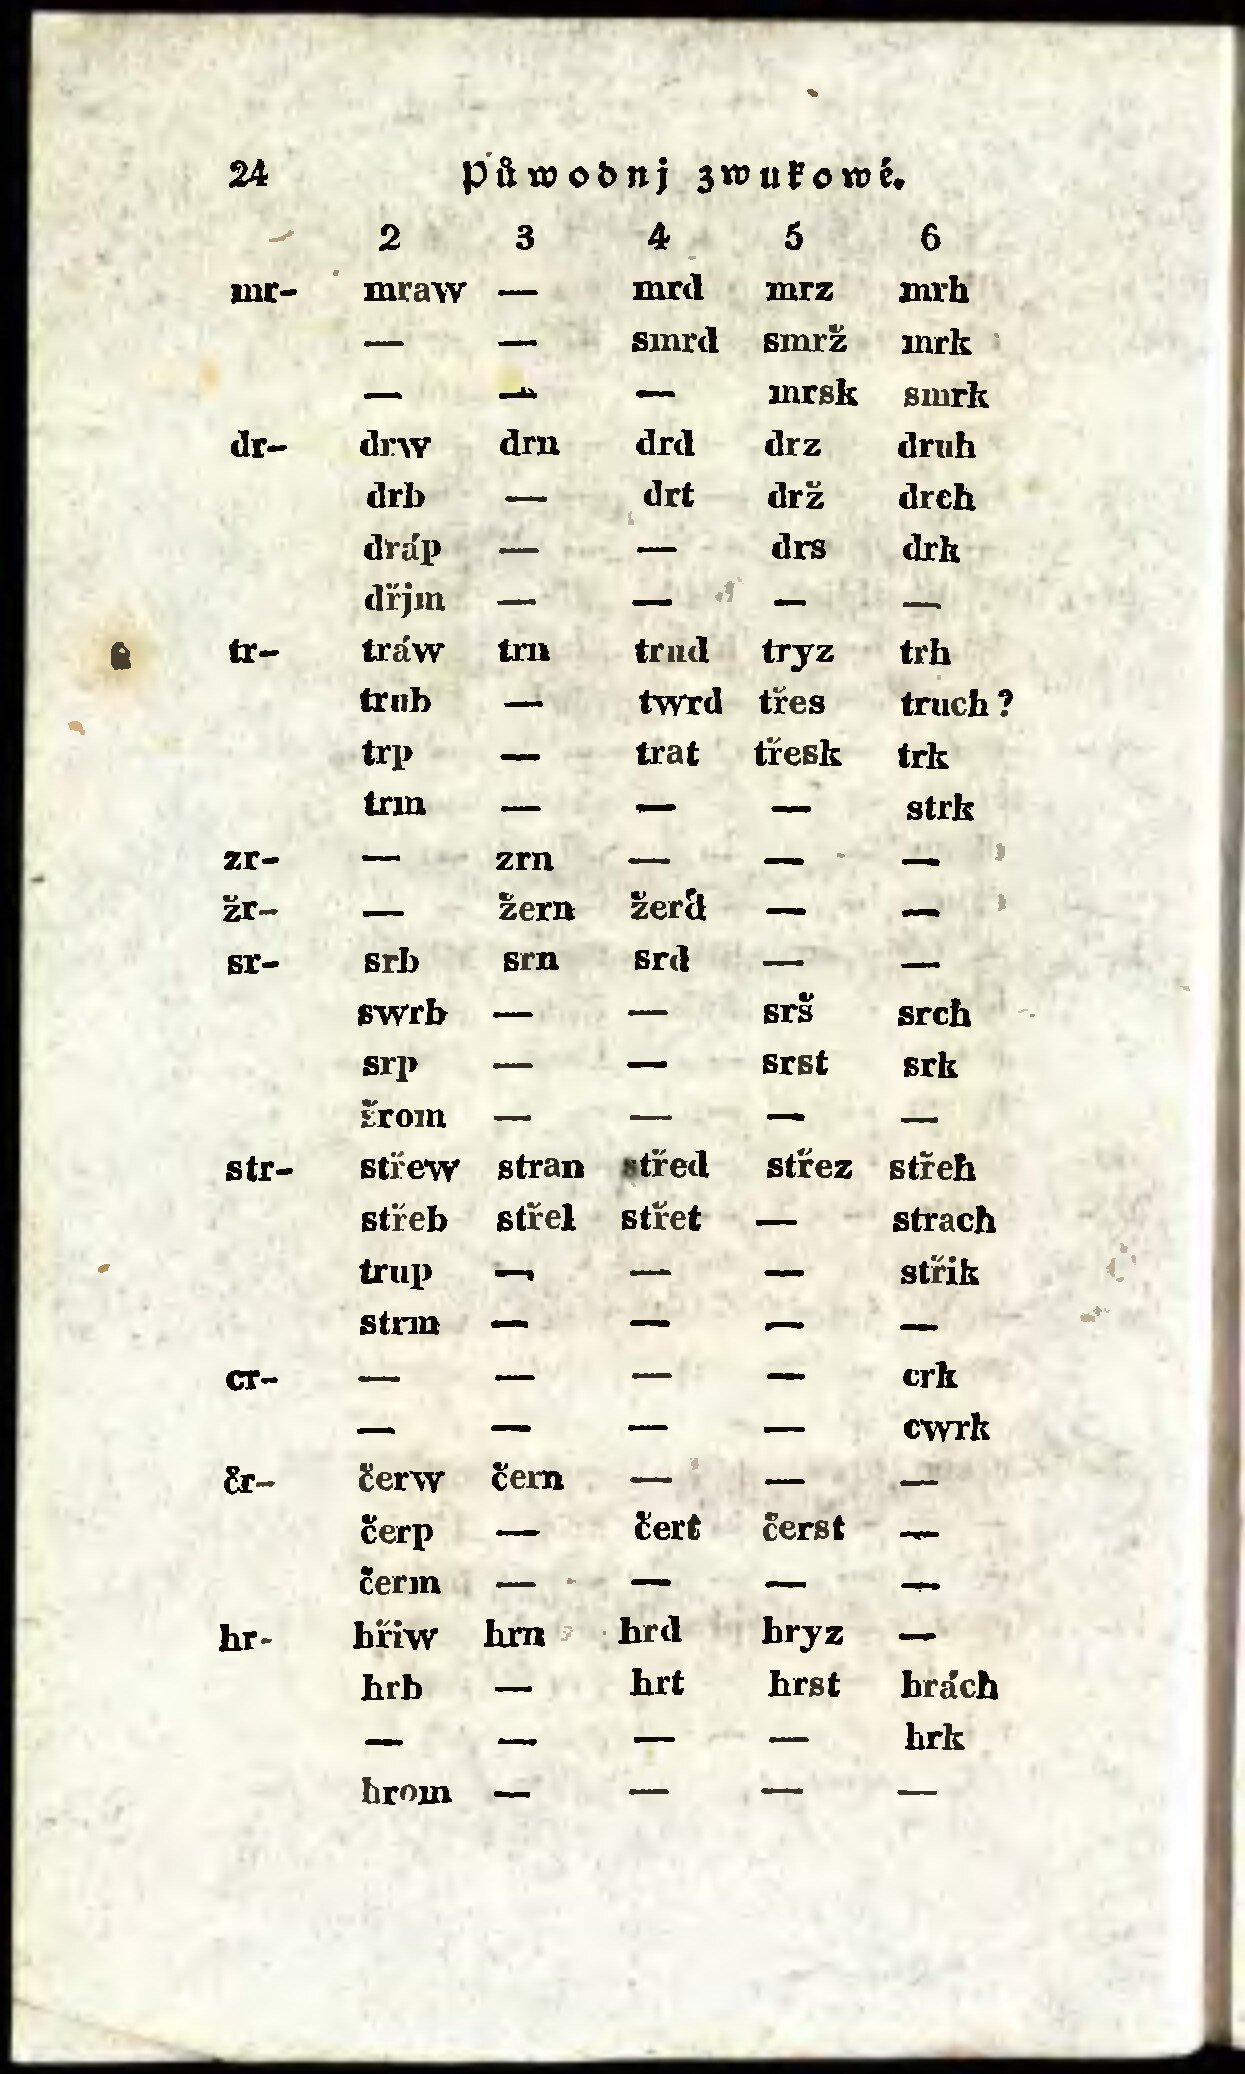 24 Půwodnj zwukowé.
2 3 4 5 6
mr- mraw — mrd mrz mrh
— — smrd smrž mrk
— — — mrsk smrk
dr- drw drn drd drz druh
drb — drt drž drch
dráp — — drs drk
dřjm — — — —
tr- tráw trn trud tryz trh
trub — twrd třes truch?
trp — trat třesk trk
trm — — — strk
zr- — zrn — — —
žr- — žern žerď — —
sr- srb srn srd — —
swrb — — srš srch
srp — — srst srk
šrom — — — —
str- střew stran střed střez střeh
střeb střel střet — strach
trup — — — střik
strm — — — —
cr- — — — — crk
— — — — cwrk
čr- čerw čern — — —
čerp — čert čerst —
čerm — — — —
hr- hřiw hrn hrd hryz —
hrb — hrt hrst hrách
— — — — hrk
hrom — — — —